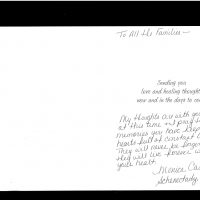 To All the Families -
Sending you
love and healing thoughts
now and in the days to co
My thoughts are with you
at this time and pray the
memories you have keep
hearts full of constant l
They will never be forgo
they will live forever in
your heart.
Monica Ca
Schenectady